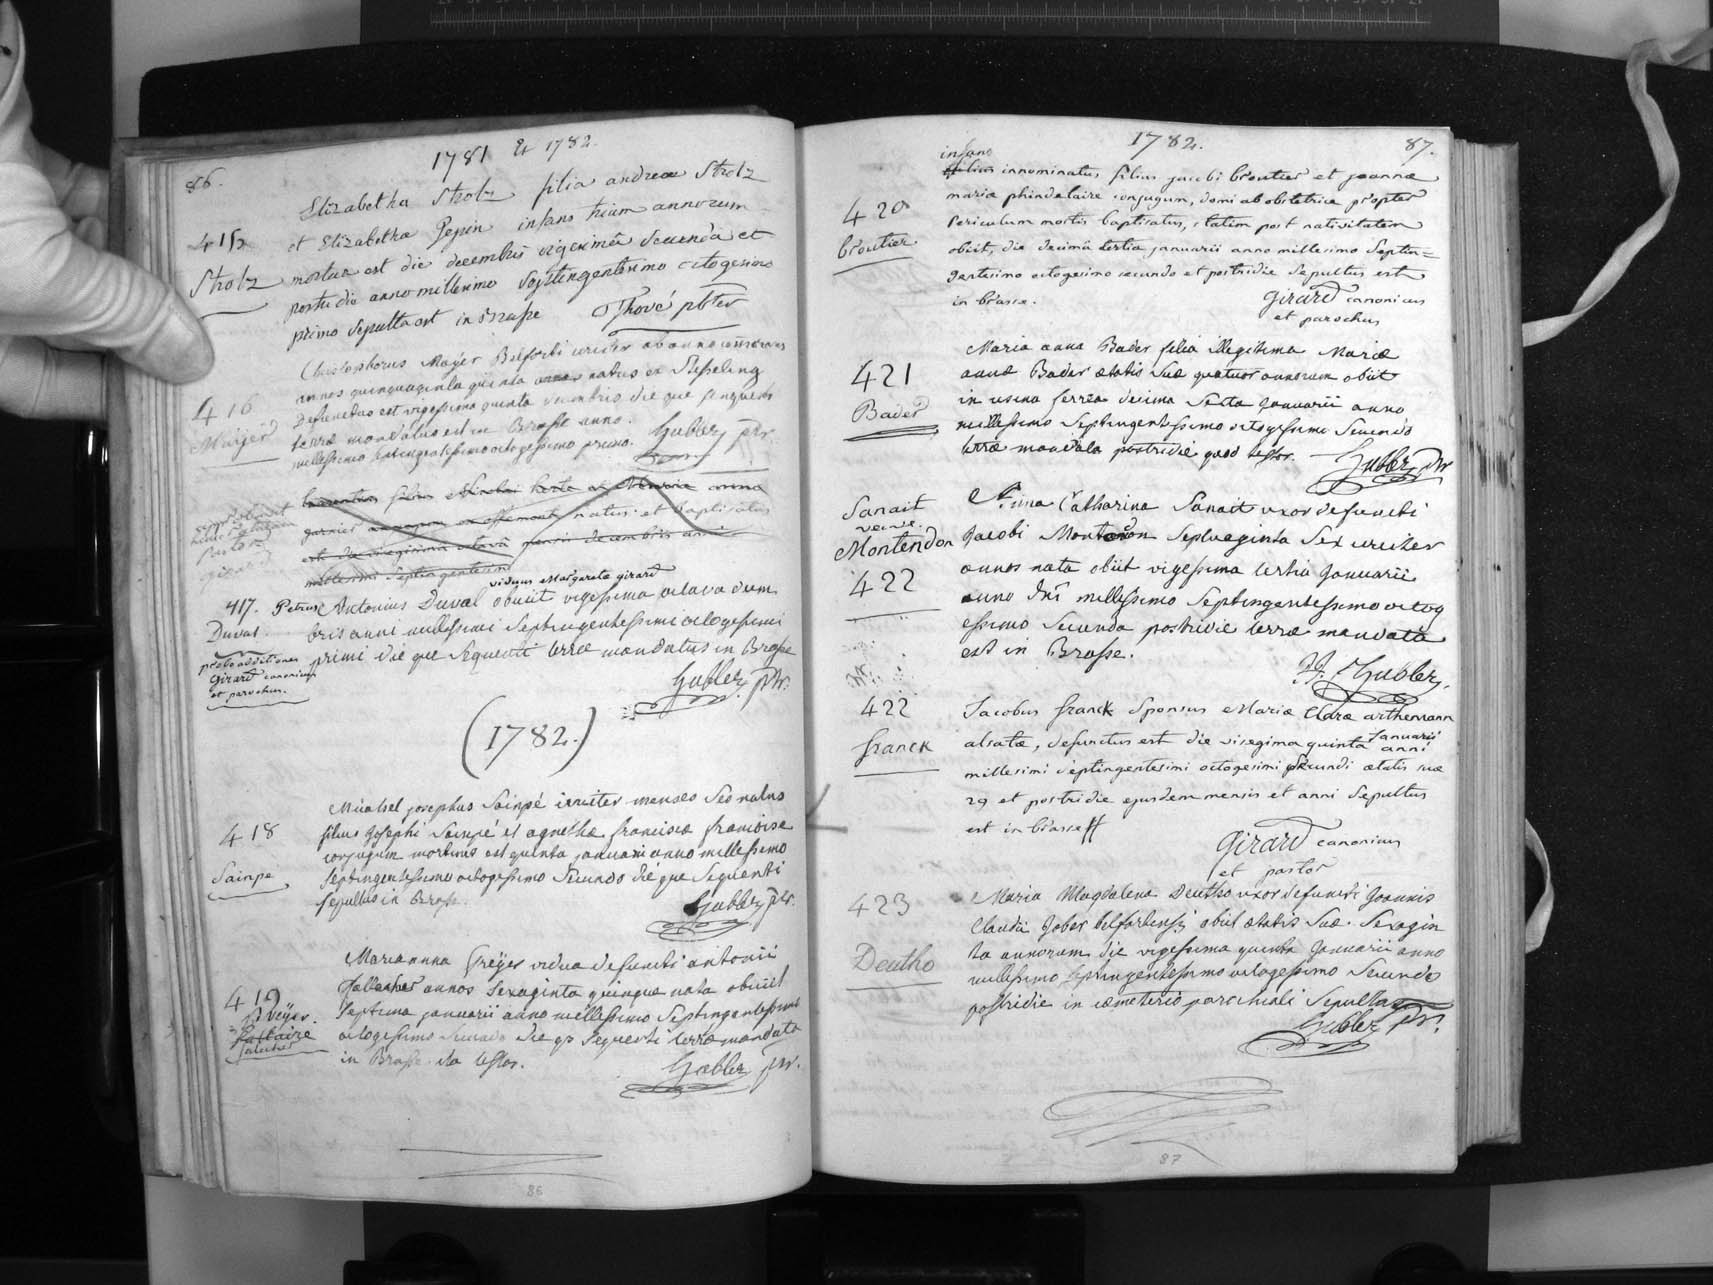 86.
1781 & 1782.
415
Strolz
Elizabetha Strolz filia andreae Strolz
et Elizabetha Pepin infans trium annorum
mortua est die decembris vigesimâ secunda et
postridie anno millesimo Septingentesimo octogesimo
primo Sepulta est in Brasse Thové pbter
416
Maÿer
Christophorus Mayer Belforti circiter ab anno
annos quinquaginta quinta natus ex
Defunctus est vigessima quinta decembris die que sequenti
terrae mandatus est in Brasse anno
millessimo septingentessimo octogessimo primo. Gubler ptr.
filius Nicolai et Maria anna
natus et baptisatus
est die vigesima octavâ mensis decembris anni
millesimi septingentesimi
pastor
girard
417.
Duval.
probo additiones
Girard canonicus
et parochus.
viduus Margareta girard
Petrus Antonius Duval obiuit vigessima octava decem
bris anni millessimi Septingentessimi octogessimi
primi die que Sequenti terrae mandatus in Brasse
Gubler ptr.
(1782.)
418
Sainpé
Michael josephus Sainpé circiter menses Sex natus
filius Josephi Sainpé et agnetha francisca francoise
conjugum mortuus est quinta januarii anno millessimo
Septingentessimo octogessimo Secundo die que Sequenti
sepultus in Brasse.
Gubler ptr.
419
freÿer.
fallacher
Mariannna freÿer vidua defuncti antonii
fallacher annos Sexaginta quinque nata obiuit
Septima januarii anno millessimo Septingentessimo
octogessimo Secundo die q3 Sequenti terrae mandata
in Brasse ita testor.
Gubler ptr.
86
1782.
87.
420
broutier
infans
filius innominatus filius jacobi broutier et joannae
mariae phindelaire conjugum, domi ab obstetrice propter
Periculum mortis baptisatus, statim post nativitatem
obiit, die decimâ tertia januarii anno millesimo Septin=
gentesimo octogesimo secundo et postridie Sepultus est
in brasse.
Girard canonicus
et parochus
421
Bader
Maria anna Bader filia illegitima Mariae
annae Bader aetatis Suae quatuor annorum obiit
in usina ferrea decima Sexta Januarii anno
millessimo Septingentessimo octogessimo Secundo
terrae mandata postridie quod testor.
Gubler Ptr
Sanait
veuve.
Montendon
422
Anna Catharina Sanait uxor defuncti
Jacobi Montandon Septuaginta Sex circiter
annos nata obiit vigessima tertia Januarii
anno Dni millessimo Septingentessimo octog
essimo Secundo postridie terrae mandata
est in Brasse.
JJ. Gubler.
422
franck
Jacobus franck Sponsus Mariae Clarae arthemann
alsatae, defunctus est die visegima quinta Januarii
anni
millesimi septingentesimi octogesimi Secundi aetatis suae
29 et postridie ejusdem mensis et anni Sepultus
est in brasse
Girard canonicus
et pastor
423
Deutho
Maria Magdalena Deutho uxor defuncti Joannis
Claudii Jober belfortensis obiit aetatis Suae Sexagin
ta annorum die vigessima quinta Januarii anno
millessimo septingentessimo octogessimo Secundo
postridie in caemeterio parochiali Sepulta
Gubler Ptr.
87